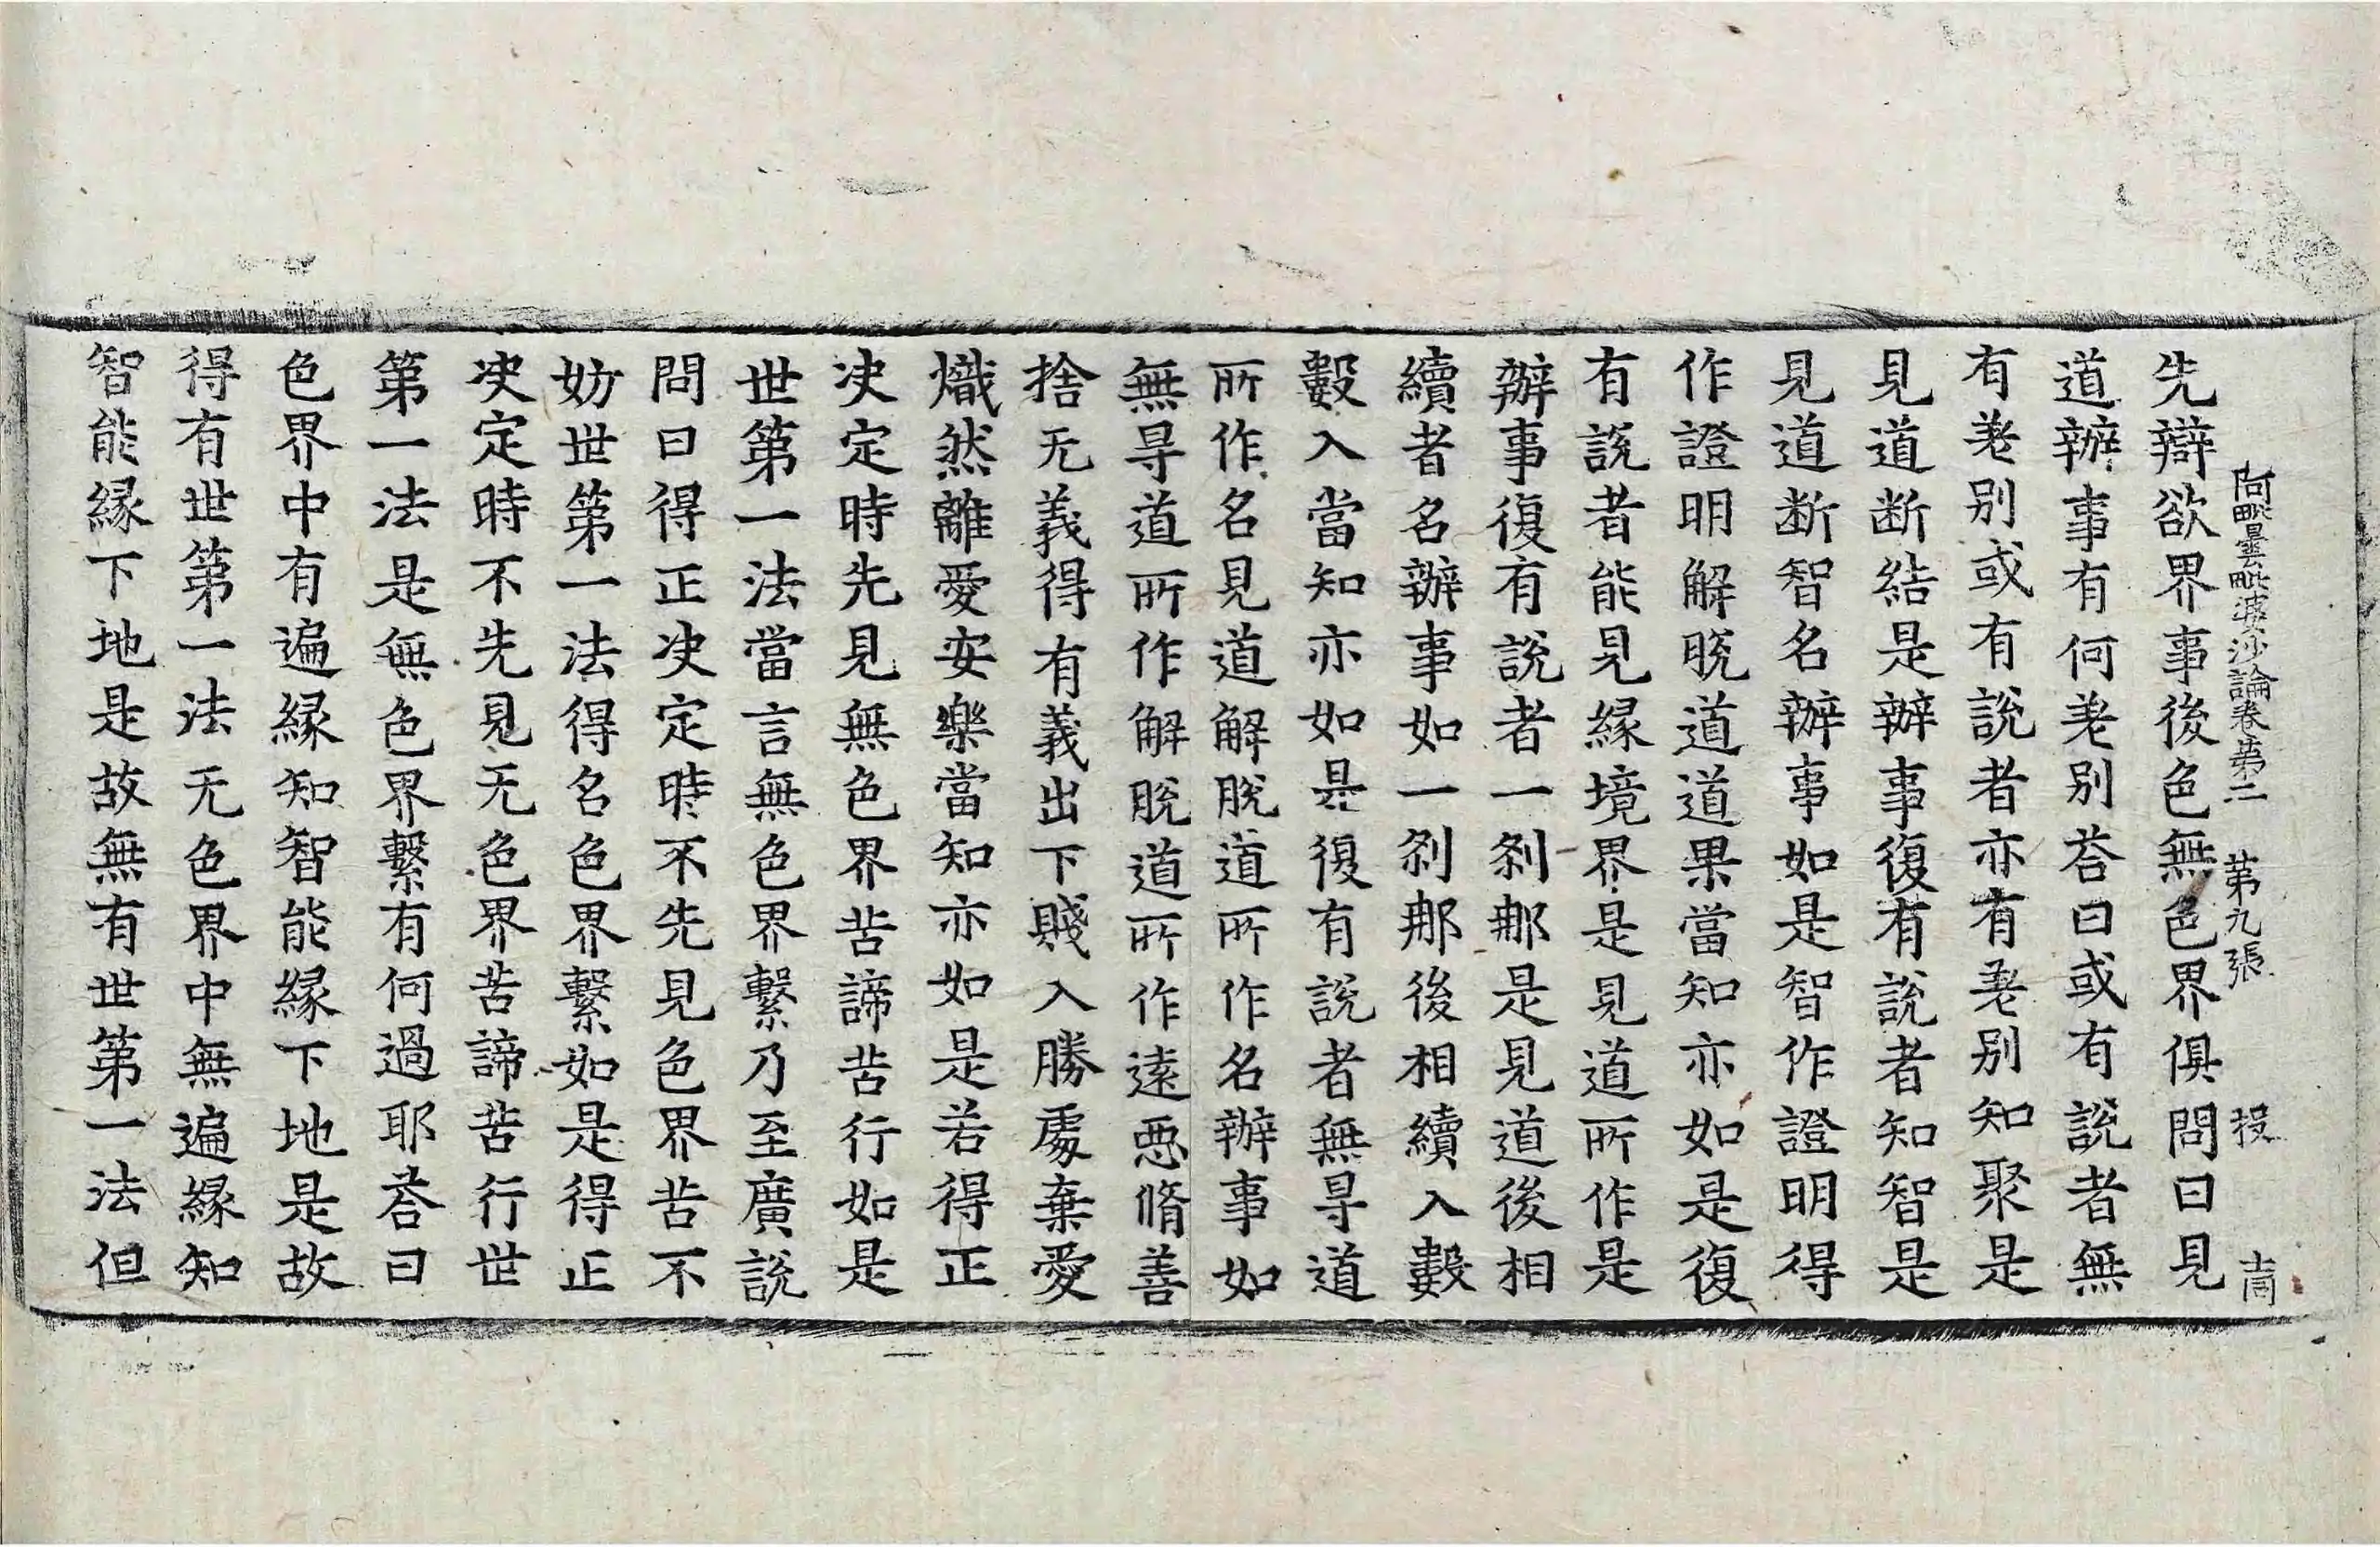 阿毗曇毗婆沙論卷第二　第九張　投
先辯欲界事後色無色界俱問曰見
道辦事有何差別荅曰或有說者無
有差別或有說者亦有差別知聚是
見道断結是辦事復有說者知智是
見道断智名辦事如是智作證明得
作證明解脫道道果當知亦如是復
有說者能見緣境界是見道所作是
辦事復有說者一剎那是見道後相
續者名辦事如一剎那後相續入數
數入當知亦如是復有說者無㝵道
所作名見道解脫道所作名辦事如
無㝵道所作解脫道所作遠惡脩善
捨无義得有義出下賤入勝處棄愛
熾然離愛安樂當知亦如是若得正
决定時先見無色界苦諦苦行如是
世第一法當言無色界繫乃至廣說
問曰得正决定時不先見色界苦不
妨世第一法得名色界繫如是得正
决定時不先見无色界苦諦苦行世
第一法是無色界繫有何過耶荅曰
色界中有遍緣知智能緣下地是故
得有世第一法无色界中無遍緣知
智能緣下地是故無有世第一法但